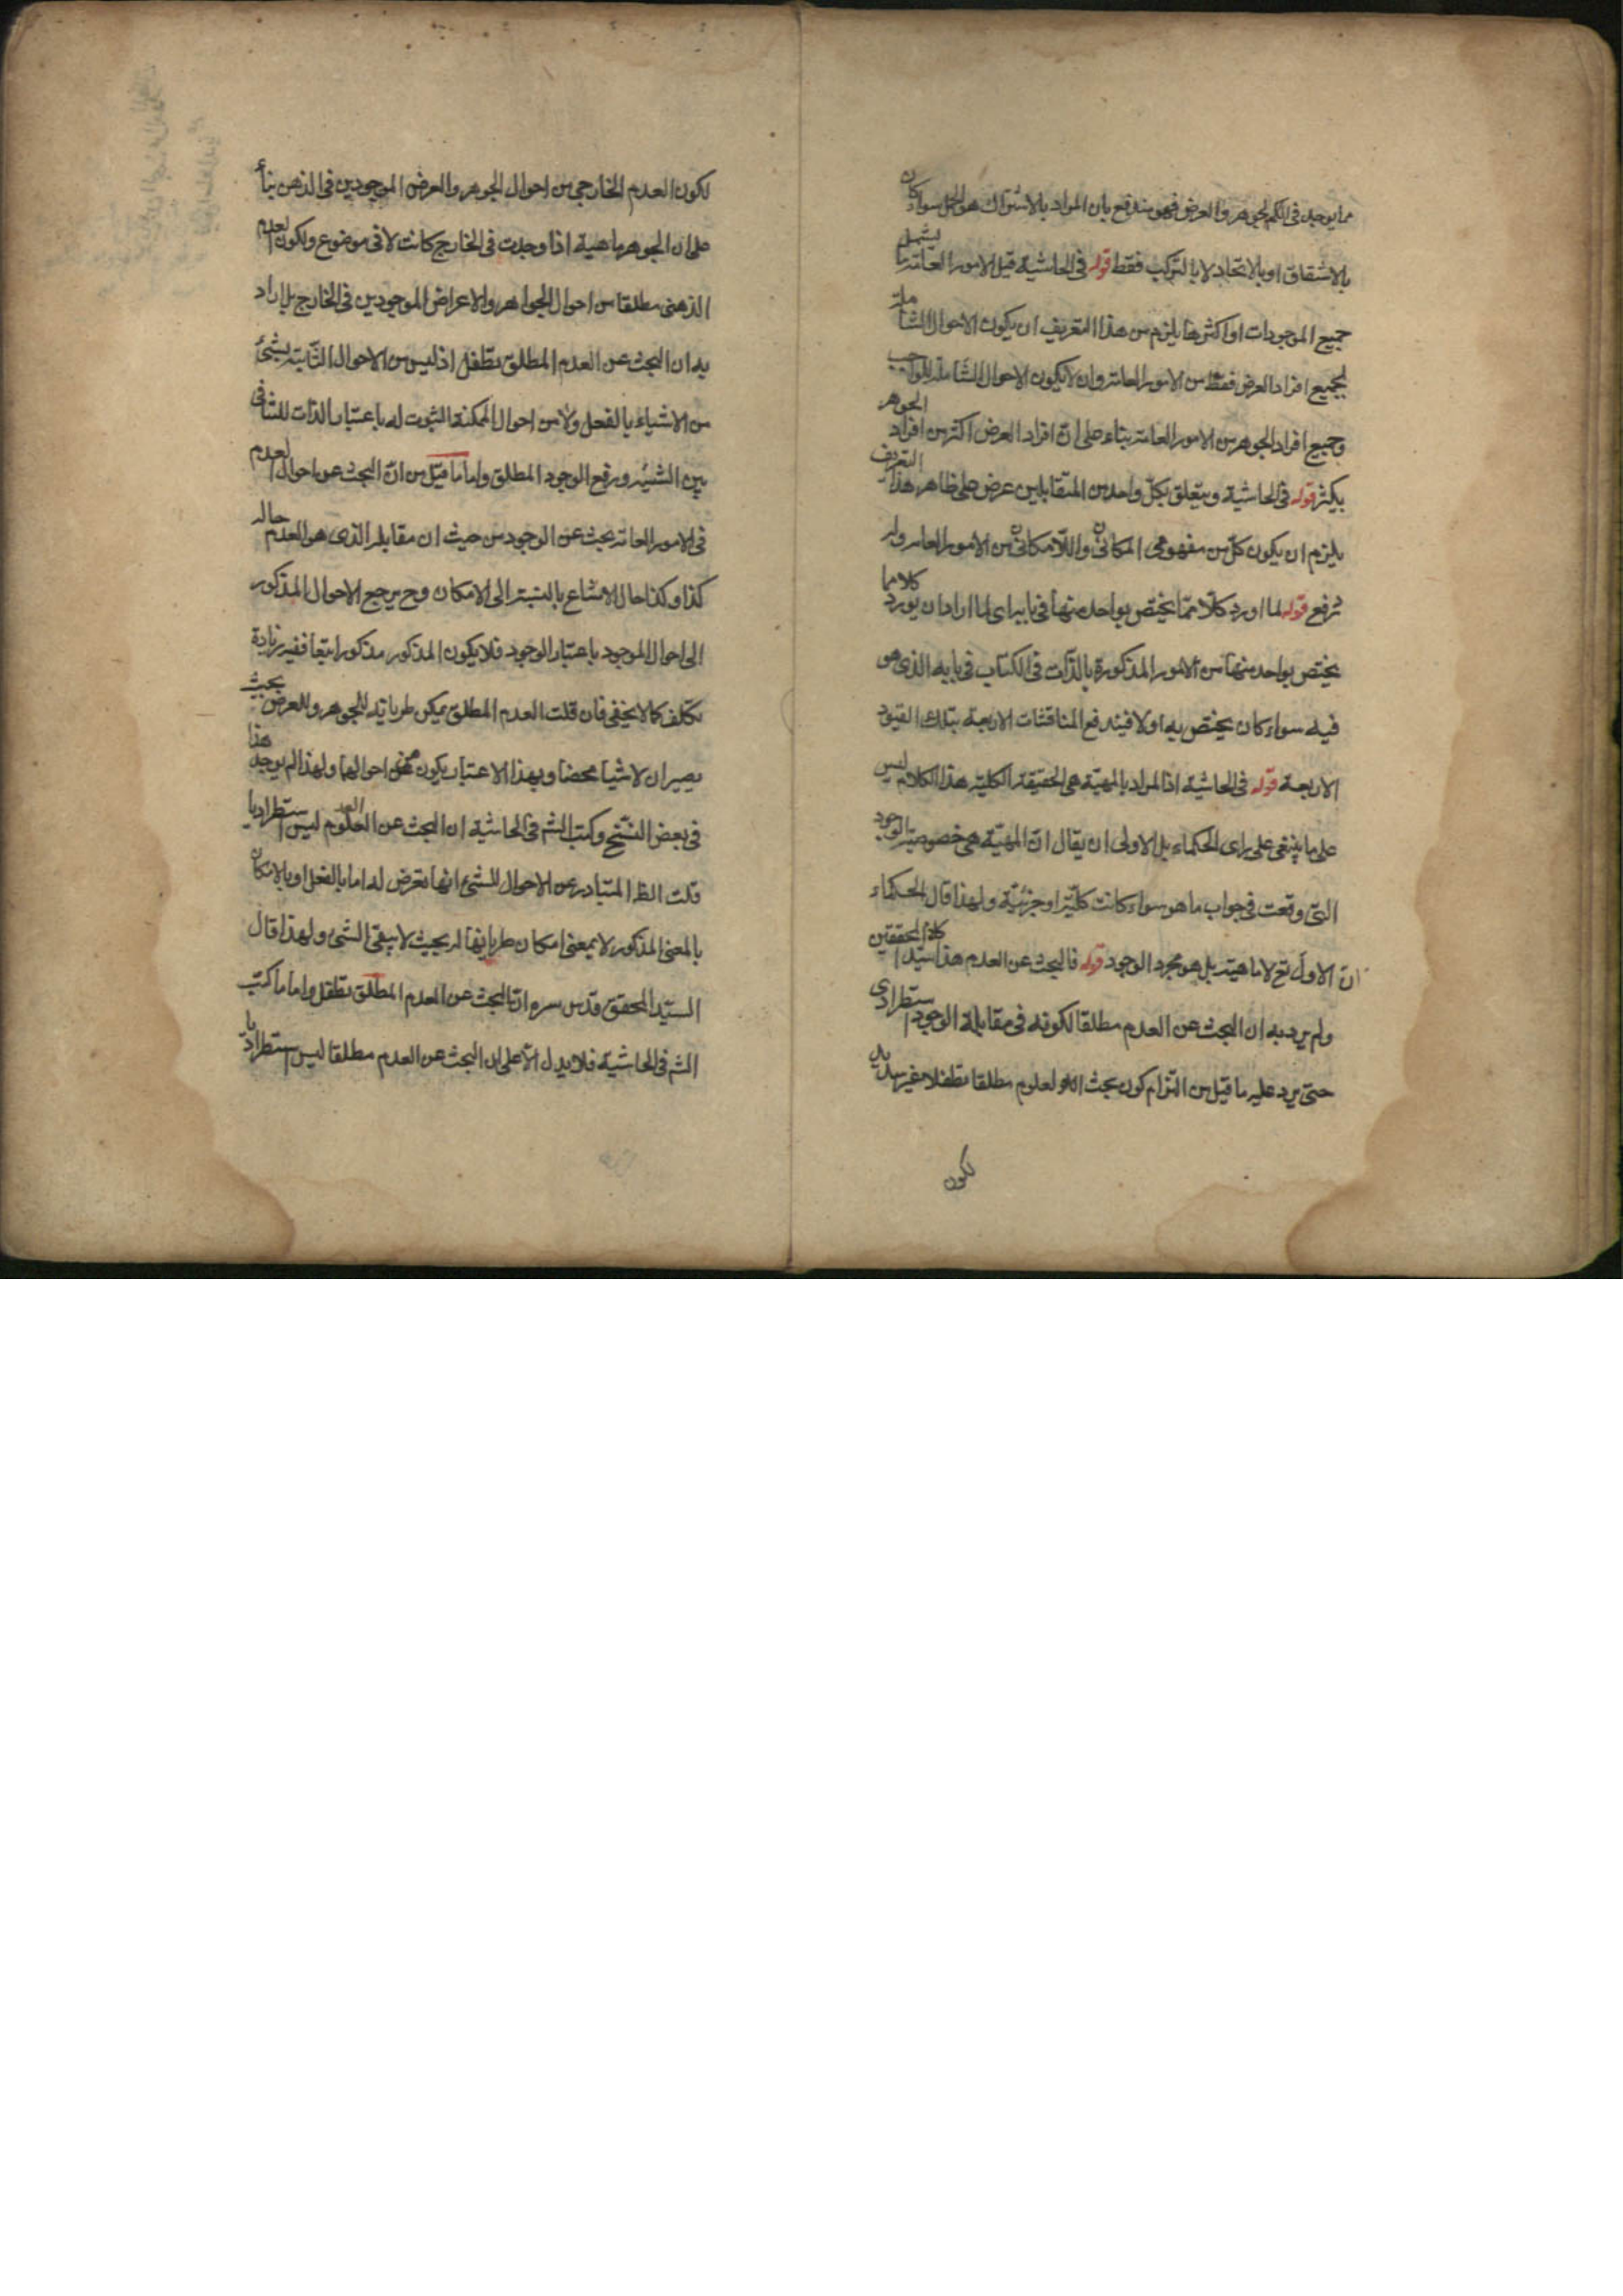 مما يوجد في الكم الجوهر والعرض فهو مندفع بان المراد بالاشتراك هو الحمل سواء كان
بالاشتقاق او بالاتحاد لا بالتركيب فقط قوله في الحاشية قيل الامور العامة ما يشمل
جميع الموجودات او اكثرها يلزم من هذا التعريف ان يكون الاحوال الشاملة
لجميع افراد العرض فقط من الامور العامة وان لا يكون الاحوال الشاملة للواجب
وجميع افراد الجوهر من الامور العامة بناء على ان افراد العرض اكثر من افراد الجوهر
بكثير قوله في الحاشية ويتعلق بكل واحد من المتقابلين عرض على ظاهر هذا التعريف
يلزم ان يكون كل من مفهومي المكاني واللامكاني من الامور العامة وله
ترفع قوله لما اورد كلا مما يختص بواحد منها في بابه اى لما اراد ان يورد كلاما
يختص بواحد منها من الامور المذكورة بالذات في الكتاب في بابه الذى هو
فيه سواء كان يختص به اولا فيندفع المناقشات الاربعة بتلك القيود
الاربعة قوله في الحاشية اذ المراد بالمهية هي الحقيقة الكلية هذا الكلام ليس
على ما ينبغي على راى الحكماء بل الاولى ان يقال ان المهية هي خصوصية الوجود
التى وقعت في جواب ما هو سواء كانت كلية او جزئية ولهذا قال الحكماء
ان الاول تع لا ماهية بل هو مجرد الوجود قوله فالبحث عن العدم هذا سيد المحققين
ولم يرد به ان البحث عن العدم مطلقا لكونه في مقابلة الوجود استطرادى
حتى يرد عليه ما قيل من التزام كون بحث العدم مطلقا تطفلا غير سديد
لكون
لكون العدم الخارجي من احوال الجوهر والعرض الموجودين في الذهن بناء
على ان الجوهر ماهية اذا وجدت في الخارج كانت لا في موضوع ولكون العدم
الذهنى مطلقا من احوال الجواهر والاعراض الموجودين في الخارج بل اراد
به ان البحث عن العدم المطلق تطفل اذ ليس من الاحوال الثابتة بشئ
من الاشياء بالفعل ولا من احوال الممكنة الثبوت له باعتبار الذات للتنافى
بين الشيئية ورفع الوجود المطلق واما ما قيل من ان البحث عن احوال العدم
في الامور العامة بحث عن الوجود من حيث ان مقابله الذى هو العدم حاله
كذا وكذا حال الامتناع بالنسبة الى الامكان وح يرجع الاحوال المذكور
الى احوال الموجود باعتبار الوجود فلا يكون المذكور مذكورا تبعا ففيه زيادة
تكلف كما لا يخفى فان قلت العدم المطلق يمكن طريانه للجوهر وللعرض بحيث
يصيران لا شيا محضا وبهذا الاعتبار يكون من احوالها ولهذا لم يوجد هذا
في بعض النسخ وكتب الشم في الحاشية ان البحث عن المعدوم ليس استطراديا
قلت الظ المتبادر عن الاحوال للشئ انها تعرض له اما بالفعل او بالامكان
بالمعنى المذكور لا بمعنى امكان طريانها له بحيث لا يبقى الشئ ولهذا قال
السيد المحقق قدس سره ان البحث عن العدم المطلق تطفل واما ما كتب
الشم في الحاشية فلا يدل الا على ان البحث عن العدم مطلقا ليس استطراديا